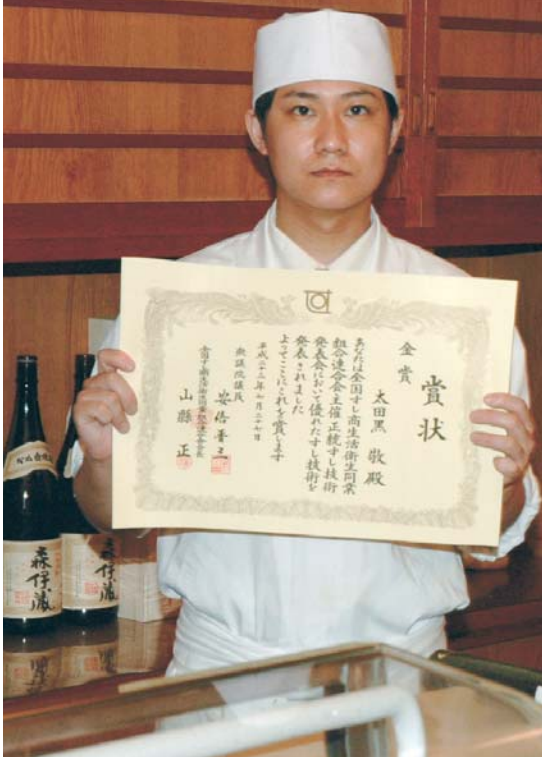 賞状
金賞
太田黒 敬 殿
あなたは全国すし商生活衛生同業
組合連合会主催正統すし技術
発表会において優れたすし技術を
発表されました
よってここにこれを賞します
平成二十三年七月二十七日
衆議院議員
安倍晋三
全国すし商生活衛生同業組合連合会会長
山縣 正
森伊蔵
森伊蔵